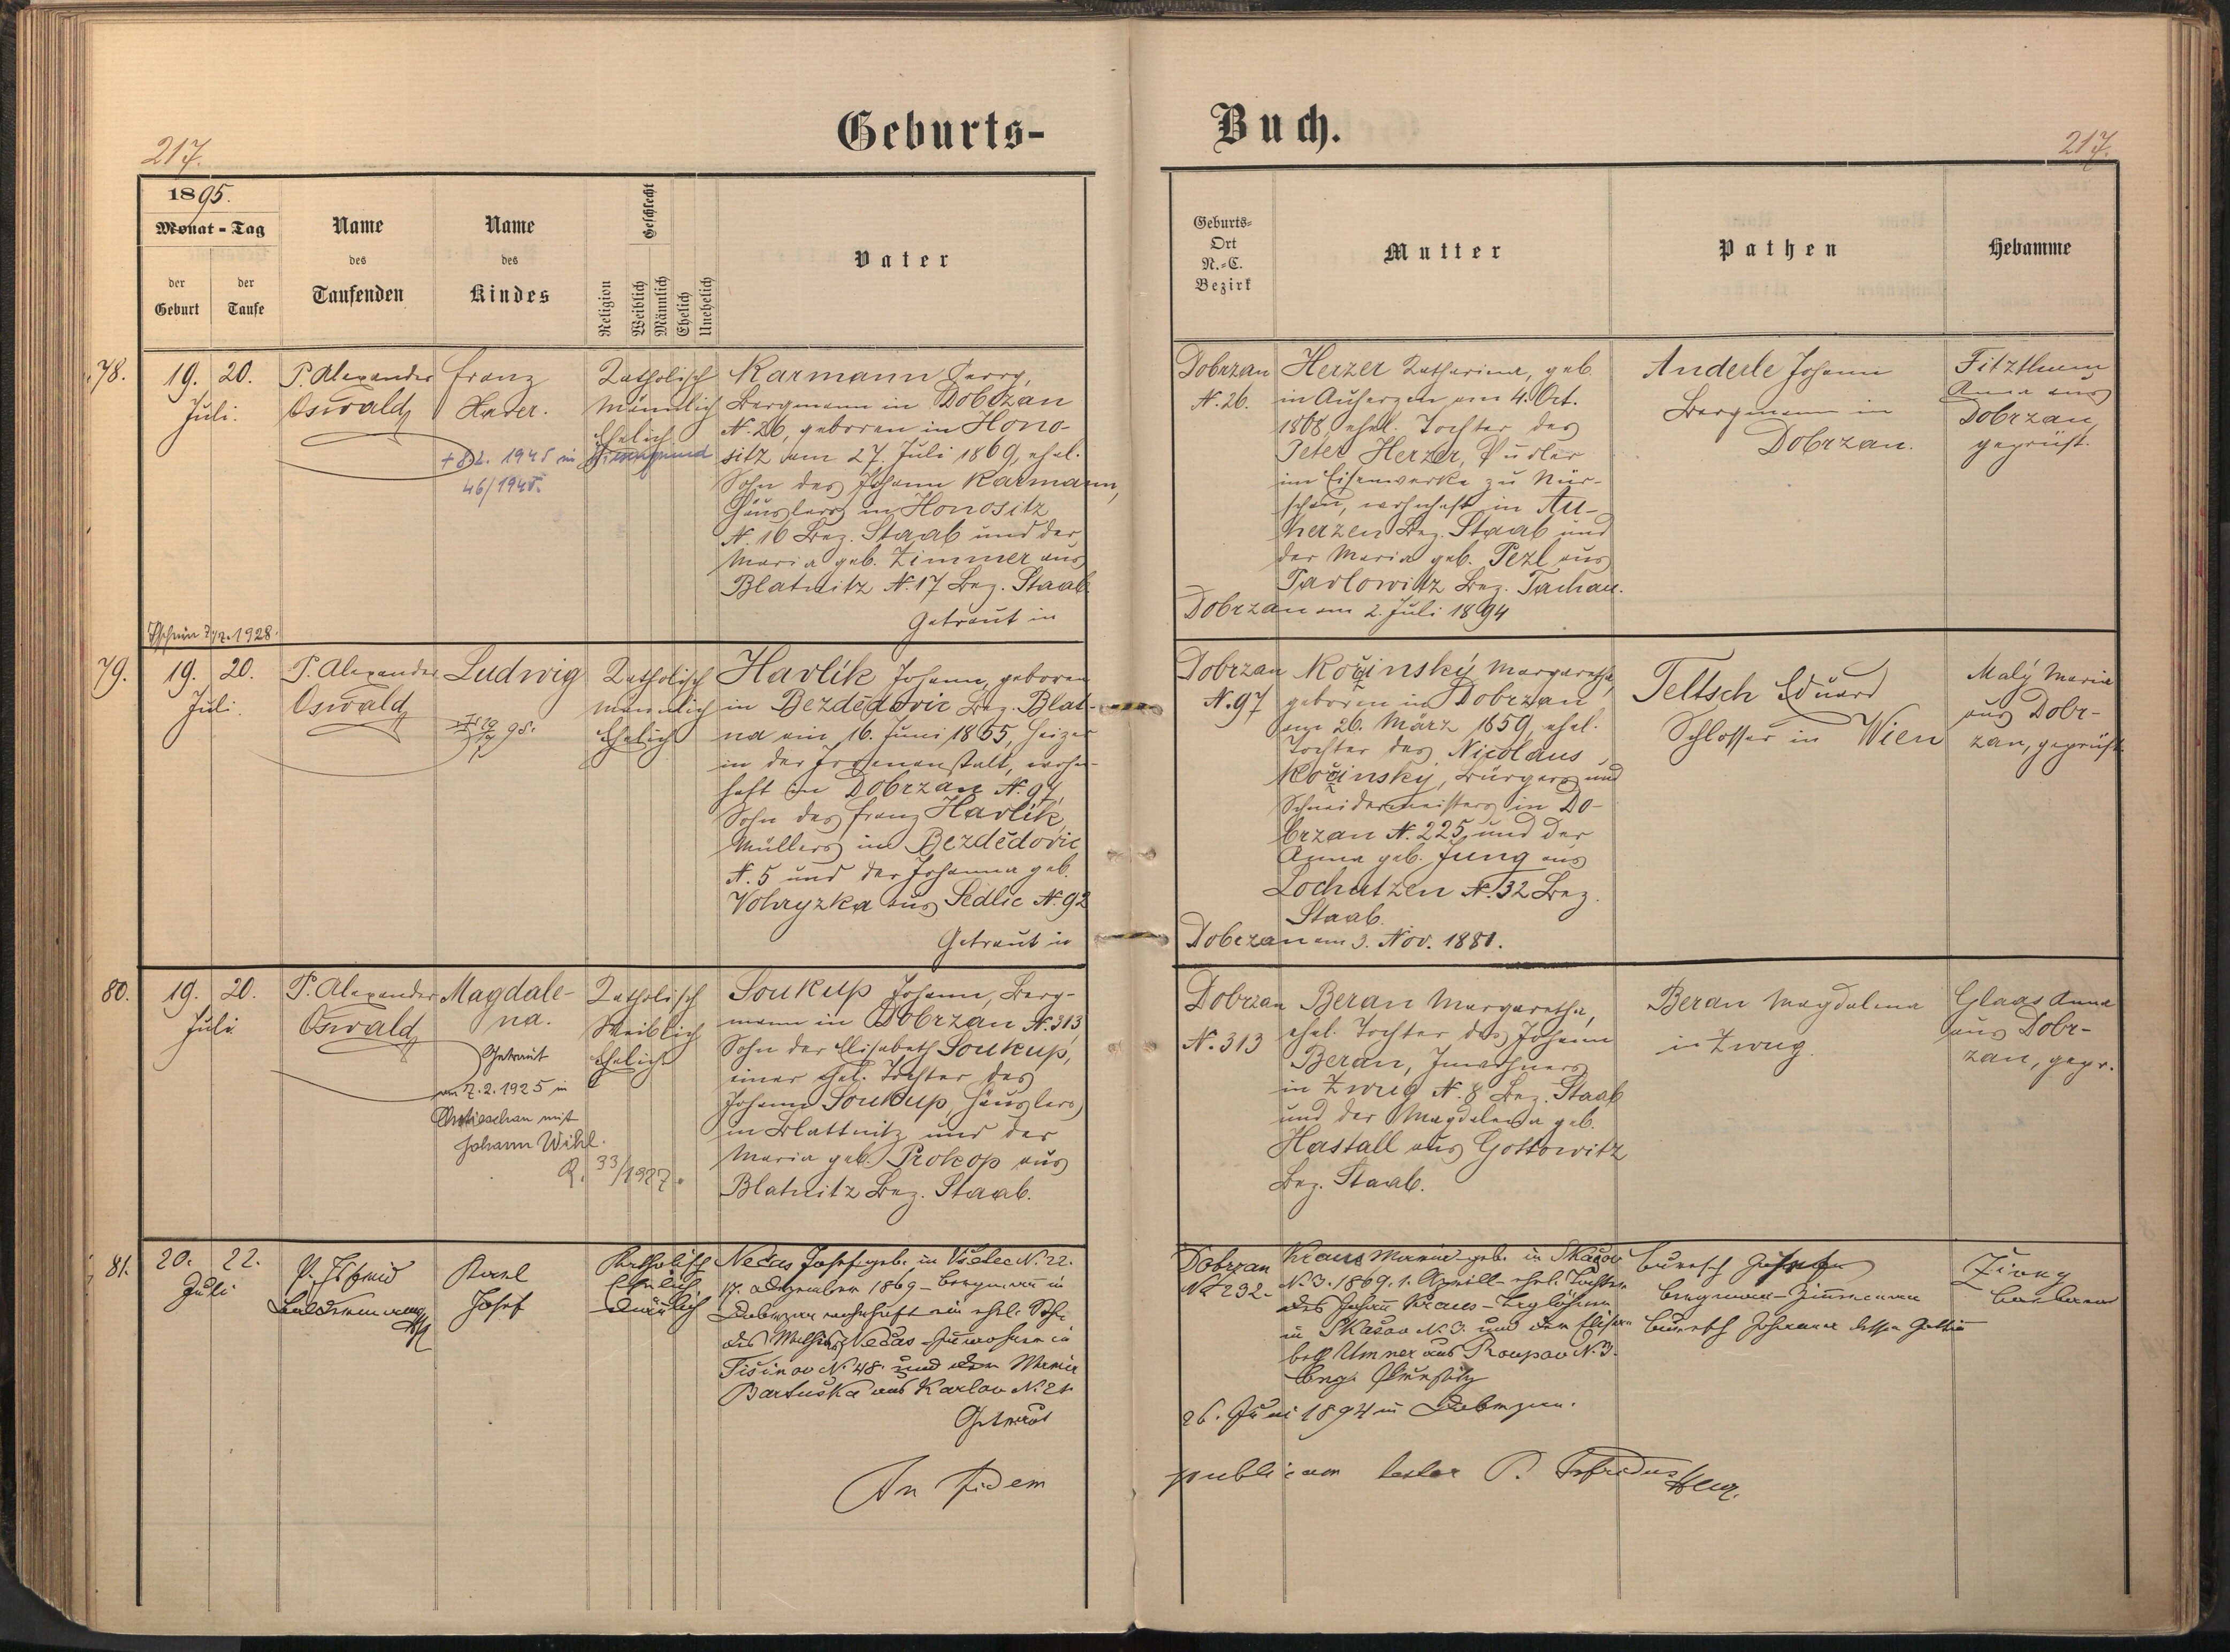 Geburts-
Buch.
217.
217.
1895.
Monat - Tag
der Geburt
der Taufe
Name des Taufenden
Name des Kindes
Religion
Geschlecht
Weiblich
Männlich
Ehelich
Unehelich
Vater
Geburts-
Ort
N.-C.
Bezirk
Mutter
Pathen
Hebamme
78.
19. 20.
Juli.
P. Alexander
Oswald
Franz
Xaver.
46/1945.
Katholisch
Männlich
Ehelich
Karmann Georg,
Bergmann in Dobrzan
N. 26, geboren in Hono-
sitz am 27. Juli 1869, ehel.
Sohn des Johann Karmann,
Häuslers in Honositz
N. 16 Bez. Staab und der
Maria geb. Zimmer aus
Blatnitz N. 17 Bez. Staab.
Getraut in
Dobrzan
N. 26.
Herzer Katharina, geb.
in Auherzen am 4. Okt.
1868, ehel. Tochter des
Peter Herzer, Pudler
im Eisenwerke zu Nür-
schan, wohnhaft in Au-
herzen Bez. Staab und
der Maria geb. Pezl aus
Bez. Tachau.
Dobrzan am 2. Juli 1894
Anderle Johann
Bergmann in
Dobrzan.
Fitzthum
Anna aus
Dobrzan,
geprüft.
1928.
79.
19. 20.
Juli.
P. Alexander
Oswald
Ludwig
95.
Katholisch
männlich
Ehelich
Havlík Johann, geboren
in Bezdědovic Bez. Blat-
na am 16. Juni 1855, Heizer
in der Irrenanstalt, wohn-
haft in Dobrzan N. 97,
Sohn des Franz Havlík,
Müllers in Bezdědovic
N. 5 und der Johanna geb.
Vohryzka aus Sedlic N. 92
Getraut in
Dobrzan
N. 97
Kočinský Margaretha,
geboren in Dobrzan
am 26. März 1859, ehel.
Tochter des Nicolaus
Kočinský, Bürgers und
Schneidermeisters in Do-
brzan N. 225 und der
Anna geb. Jung aus
Lochutzen N. 32 Bez.
Staab.
Dobrzan am 3. Nov. 1881.
Teltsch Eduard
Schlosser in Wien
Malý Maria
aus Dobr-
zan, geprüft.
80.
19. 20.
Juli
P. Alexander
Oswald
Magdale-
na.
Getraut
am 7.2.1925 in
Chotieschau mit
Johann Wihl.
33/1927.
Katholisch
Weiblich
Ehelich
Soukup Johann, Berg-
mann in Dobrzan N. 313
Sohn der Elisabeth Soukup,
einer ehel. Tochter des
Johann Soukup, Häuslers
in Blattnitz und der
Maria geb. Prokop aus
Blatnitz Bez. Staab.
Dobrzan
N. 313
Beran Margaretha,
ehel. Tochter des Johann
Beran, Inwohners
in Zwug N. 8 Bez. Staab
und der Magdalena geb.
Hastall aus Gottowitz
Bez. Staab.
Beran Magdalena
in Zwug.
Glaas Anna
aus Dobr-
zan, gepr.
81.
20. 22.
Juli
Karl
Josef
Katholisch
Ehelich
Männlich
Nečas Josef geb. in N. 22.
17. Dezember 1869 - Bergmann in
Dobrzan wohnhaft ein ehel. Sohn
des Mathias Nečas - Inwohner in
Tišinov N. 48. und der Maria
Bartuška aus Karlov N. 21
Getraut
Dobrzan
No 232.
Kraus Maria geb. in Skašov
N. 3. 1869. 1. Aprill - ehel. Tochter
des Johann Kraus - Taglöhner
in Skašov N. 3. und der Elisa-
beth aus Roupov N. 3.
26. Juni 1894 in Dobrzan.
Buresch Josef
Bergmann - Zimmermann
Buresch Johanna dessen Gattin
Barbara
An Fidem
publicam testor P.